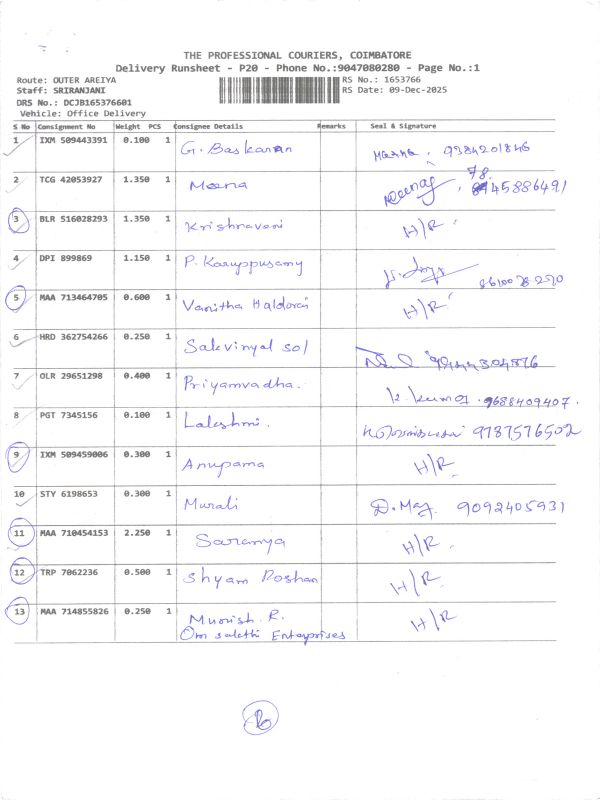 THE PROFESSIONAL COURIERS, COIMBATORE
Delivery Runsheet - P20 - Phone No.:9047080280 - Page No.:1
Route: OUTER AREIYA RS No.: 1653766
Staff: SRIRANJANI RS Date: 09-Dec-2025
DRS No.: DCJB165376601
Vehicle: Office Delivery
S No Consignment No Weight PCS Consignee Details Remarks Seal & Signature
1 IXM 509443391 0.100 1 G. Baskaran 9384201846
2 TCG 42053927 1.350 1 Meena
3 BLR 516028293 1.350 1 Krishnaveni H/R
4 DPI 899869 1.150 1 P. Karuppusamy
5 MAA 713464705 0.600 1 Vanitha Haldorai H/R
6 HRD 362754266 0.250 1 Sakvinyal sol
7 OLR 29651298 0.400 1 Priyamvadha. K. Kumar 9688409407.
8 PGT 7345156 0.100 1 Lakshmi. 9787576502
9 IXM 509459006 0.300 1 Anupama H/R
10 STY 6198653 0.300 1 Murali D. May 9092405931
11 MAA 710454153 2.250 1 Saranya H/R.
12 TRP 7062236 0.500 1 Shyam Roshan H/R
13 MAA 714855826 0.250 1 Munish. R. H/R
Om sakthi Enterprises